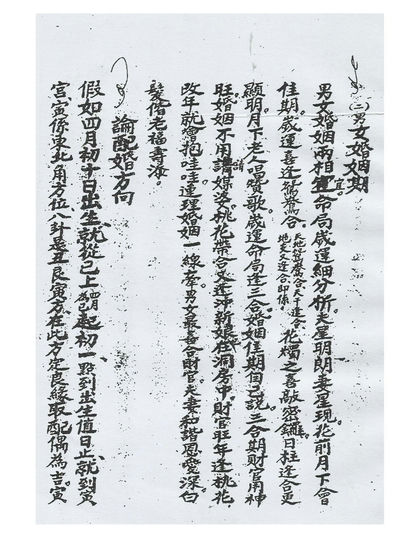 (二)男女婚姻期
男女婚姻兩相宜。命局歲運細分析。夫星明朗妻星現。花前月下會
佳期。歲運喜逢鴛鴦合。天地鴛鴦合天干逢合。地支又逢合即係花燭之喜敲密鑼。日柱逢合更
顯明。月下老人唱讚歌。歲運命局逢三合。婚姻佳期自己說。三合期財官用神
旺。婚姻不用請媒婆。桃花帶合又逢沖。新娘洞房中。財官旺年逢桃花。
改年就會抱哇哇。運理婚姻一線牽。男女最喜合財官。夫妻和諧恩愛深。白
髮偕老福壽添。
論配婚方向
假如四月初十日出生。就從巳上起初一。點到出生值日止。就到寅
宮。寅係東北角方位。八卦是丑艮寅方。在此方定良緣取配偶為吉。寅